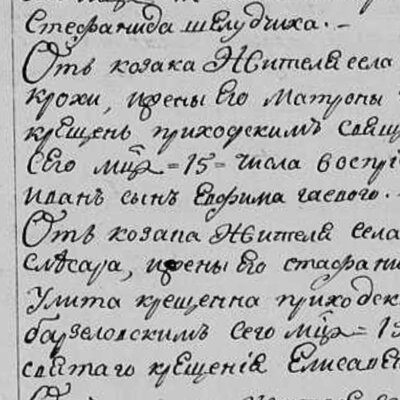 Стефанида шелудчиха. –
Отъ козака Жителя села
крохи, жены Его Матроны
крещенъ приходскимъ свящ
Сего мца = 15 = числа воспрі
иванъ сынъ Евфима гаевого. –
Отъ козака Жителя села
слѣсаря, жены Его стефани
Улита крещенна приходск
барзеловскимъ Сего мца = 15
святаго крещенія Елисавe